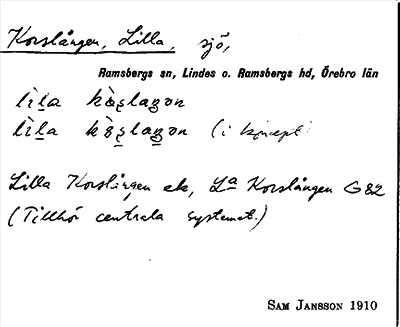 Korslången, Lilla, sjö,
Ramsbergs sn, Lindes o. Ramsbergs hd, Örebro län
lìla
lìla (i koncept)
Lilla Korslången ek, La Korslången G 82
(Tillhör centrala systemet.)
Sam Jansson 1910